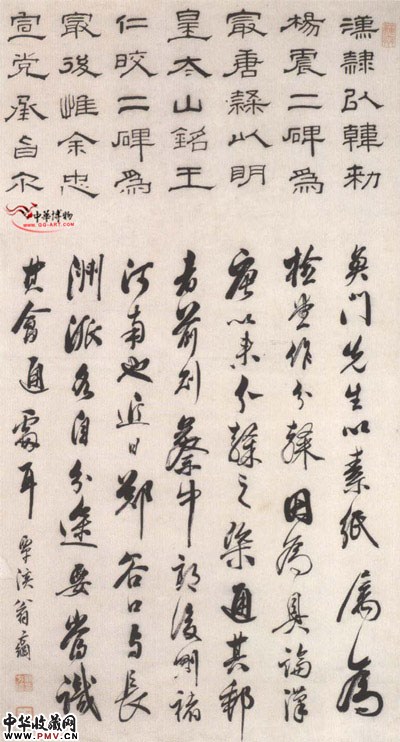 漢隸以韓勑
楊震二碑為
最唐隸以明
皇太山銘王
仁皎二碑為
最後惟余忠
宣党承旨尔
門先生以素紙屬為
檢堂作分隸因為具論漢
唐以来分隸之梁通其郵
者前則蔡中郎後則褚
河南也近日鄭谷口与長
洲派各自分途要當識
其會通處耳
覃溪翁方綱
中华博物
www.gg-art.com
中华收藏网
www.PMV.CN